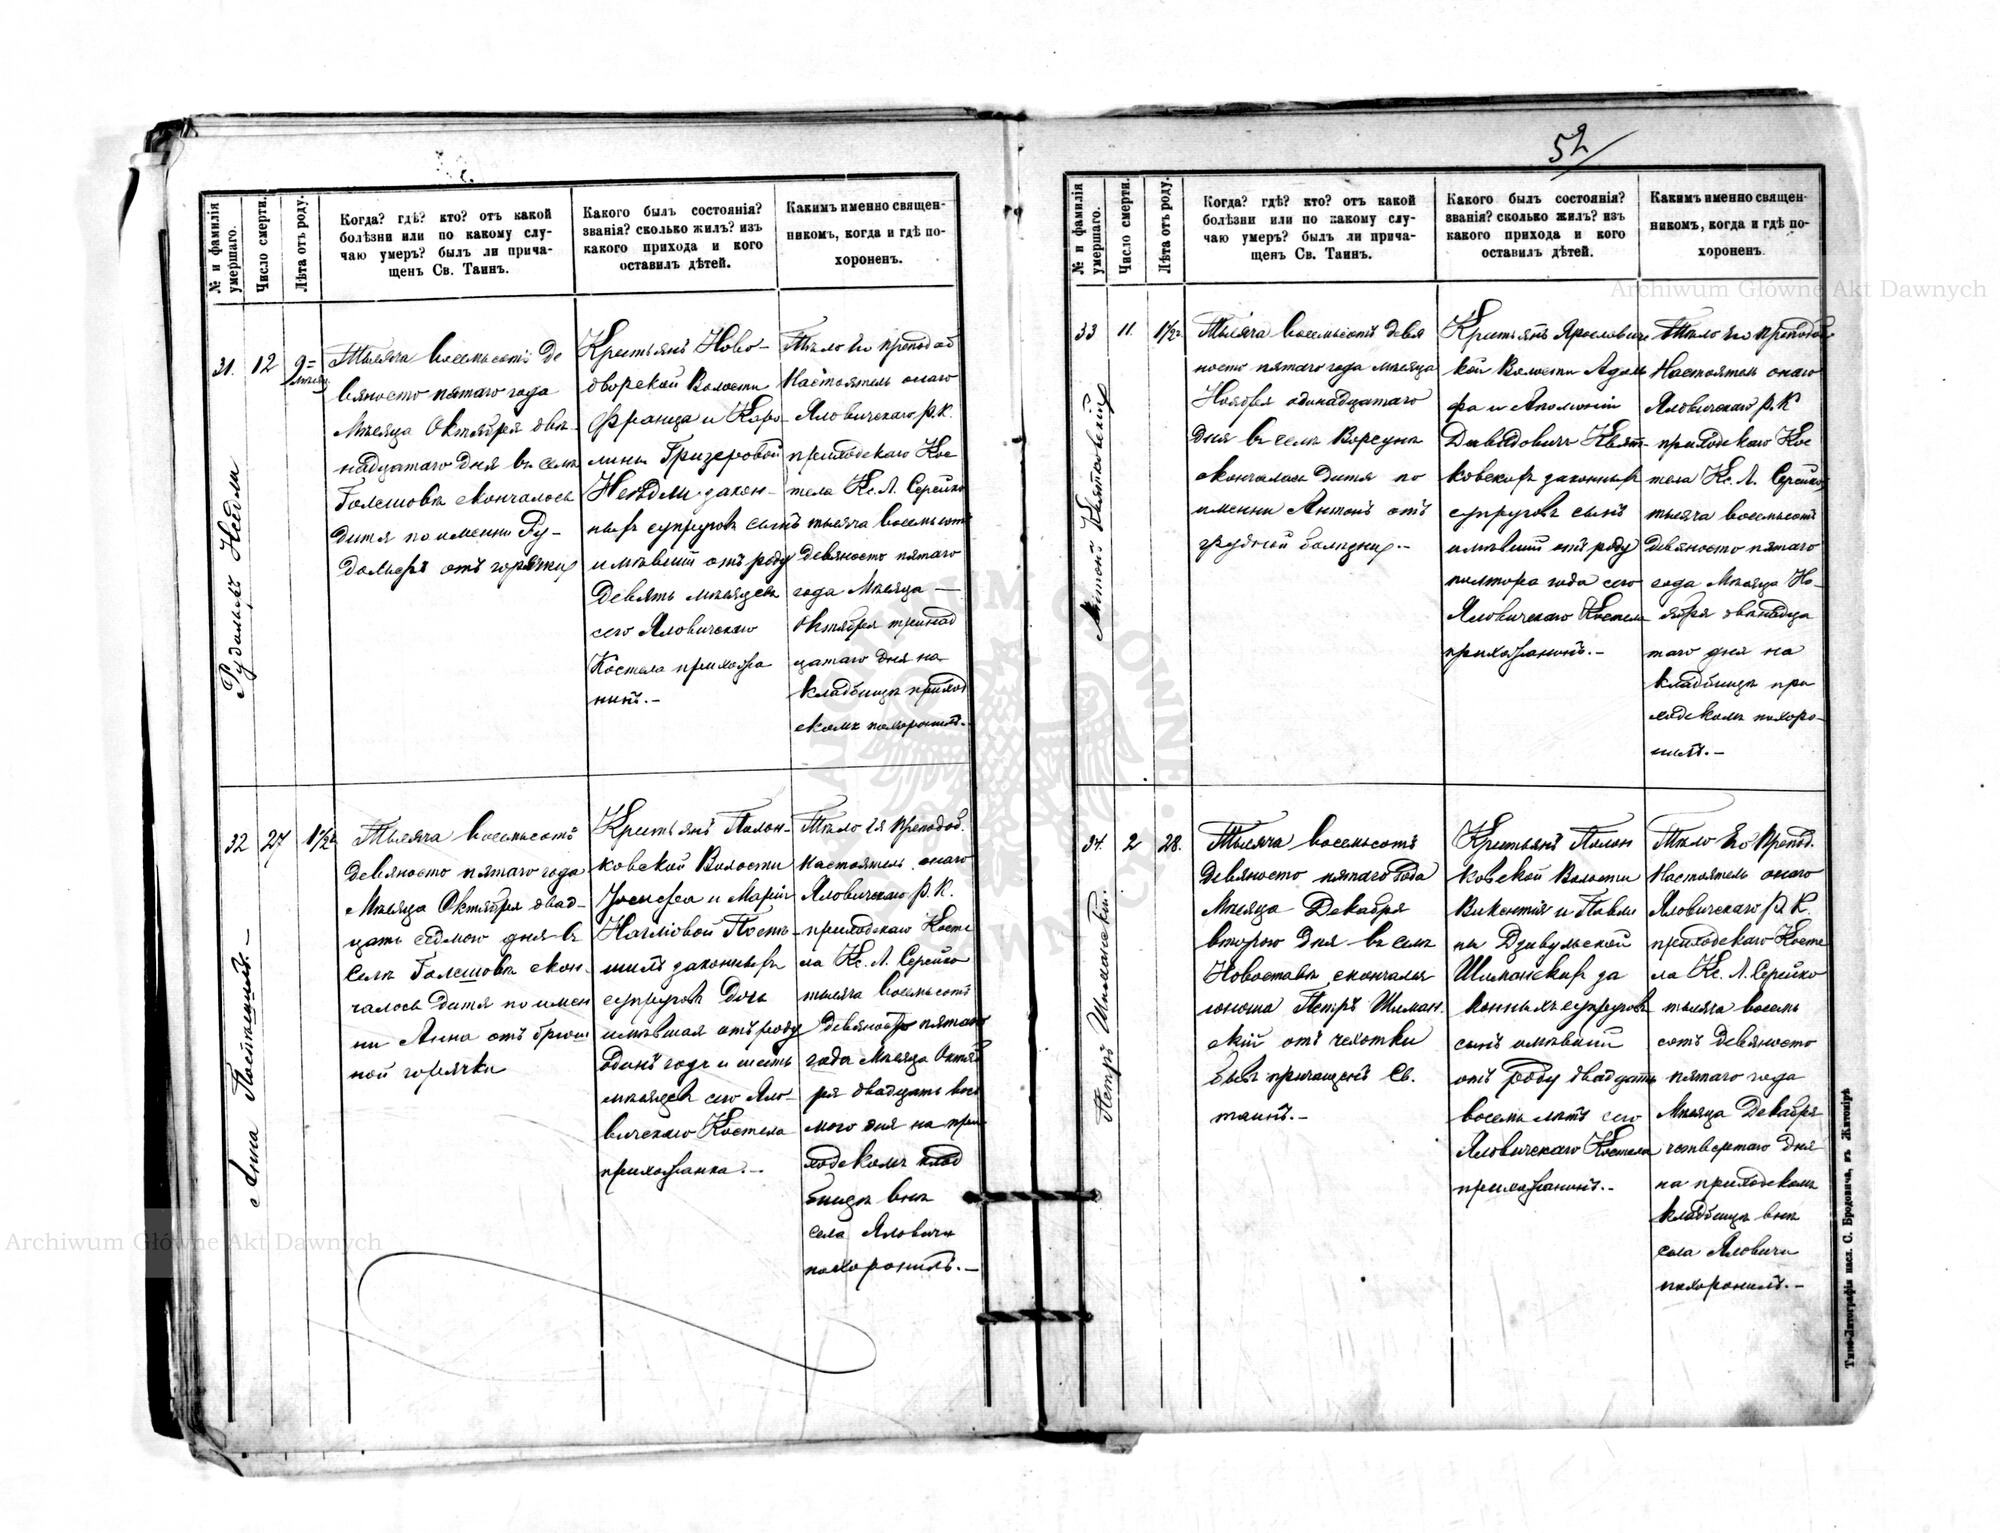 52
№ и фамилія умершаго.
Число смерти.
Лѣта отъ роду.
Когда? гдѣ? кто? отъ какой
болѣзни или по какому слу-
чаю умеръ? былъ ли прича-
щенъ Св. Таинъ.
Какого былъ состоянія?
званія? сколько жилъ? изъ
какого прихода и кого
оставилъ дѣтей.
Какимъ именно священ-
никомъ, когда и гдѣ по-
хороненъ.
31.
12
9=
Тысяча восемьсотъ де
вяносто пятаго года
Мѣсяца Октября двѣ-
надцатаго дня въ селѣ
Голешовѣ скончалось
дитя по имени Ру-
дольфъ отъ горячки
Крестьянъ Ново-
дворской Волости
Франца и Каро-
лины
законъ-
ныхъ супруговъ сынъ
имѣвшій отъ роду
девять мѣсяцевъ
сего Яловичскаго
Костела прихожа
нинъ.-
Тѣло Его преподоб
Настоятель онаго
Яловичскаго Р. К.
приходскаго Кос
тела Кс. Л. Серейко
тысяча восемьсотъ
девяносто пятаго
года Мѣсяца —
Октября тринад
цатаго дня на
кладбищѣ приход
скомъ похоронилъ.-
32
27
1 1/2
Анна
Тысяча восемьсотъ
девяносто пятаго года
Мѣсяца Октября двад-
цать седмого дня въ
селѣ Голешовѣ скон-
чалось дитя по имен
ни Анна отъ брюш
ной горячки
Крестьянъ Полон-
ковской Волости
Іосифа и Маріи
законныхъ
супруговъ дочь
имѣвшая отъ роду
одинъ годъ и шесть
мѣсяцевъ сего Яло-
вичскаго Костела
прихожанка.-
Тѣло Ея преподоб.
настоятель онаго
Яловичскаго Р. К.
приходскаго Косте
ла Кс. Л. Серейко
тысяча восемьсотъ
девяносто пятаго
года Мѣсяца Октяб
ря двадцать вось
мого дня на при
ходскомъ клад
бищѣ внѣ
села Яловичи
похоронилъ.-
№ и фамилія умершаго.
Число смерти.
Лѣта отъ роду.
Когда? гдѣ? кто? отъ какой
болѣзни или по какому слу-
чаю умеръ? былъ ли прича-
щенъ Св. Таинъ.
Какого былъ состоянія?
званія? сколько жилъ? изъ
какого прихода и кого
оставилъ дѣтей.
Какимъ именно священ-
никомъ, когда и гдѣ по-
хороненъ.
33
11.
1 1/2 г.
Антонъ Квятковскій
Тысяча восемьсотъ девя
носто пятаго года мѣсяца
Ноября одинадцатаго
дня въ селѣ Ворсунѣ
скончалась дитя по
имени Антонъ отъ
грудной болѣзни.-
Крестьянъ Ярославиче
кой Волости Адоль
фа и Аполоніи
Давидовичъ Квят-
ковскихъ законныхъ
супруговъ сынъ
имѣвшій отъ роду
полтора года сего
Яловичскаго Костела
прихожанинъ.-
Тѣло Его преподоб
Настоятель онаго
Яловичскаго Р. К
приходскаго Кос
тела Кс. Л. Серейко
тысяча восемьсотъ
девяносто пятаго
года Мѣсяца Но-
ября дванадца
таго дня на
кладбищѣ при
ходскомъ похоро-
нилъ.-
34.
2
28.
Петръ Шиманскій.
Тысяча восемьсотъ
девяносто пятаго года
Мѣсяца Декабря
второго дня въ селѣ
Новоставѣ скончался
юноша Петръ Шиман
скій отъ чехотки
бывъ причащенъ Св.
таинъ.-
Крестьянъ Полон
ковской Волости
Викентія и Павли
ны Дзивульской
Шиманскихъ за
конныхъ супруговъ
сынъ имѣвшій
отъ роду двадцать
восемь лѣтъ сего
Яловичскаго Костела
прихожанинъ.-
Тѣло Его Препод.
Настоятель онаго
Яловичскаго Р. К.
приходскаго Косте
ла Кс. Л. Серейко
тысяча восемь
сотъ девяносто
пятаго года
Мѣсяца Декабря
четвертаго дня
на приходскомъ
кладбищѣ внѣ
села Яловичи
похоронилъ.-
Типо-Литографія насл. С. Бродовича, въ Житомірѣ
Archiwum Główne Akt Dawnych
Archiwum Główne Akt Dawnych